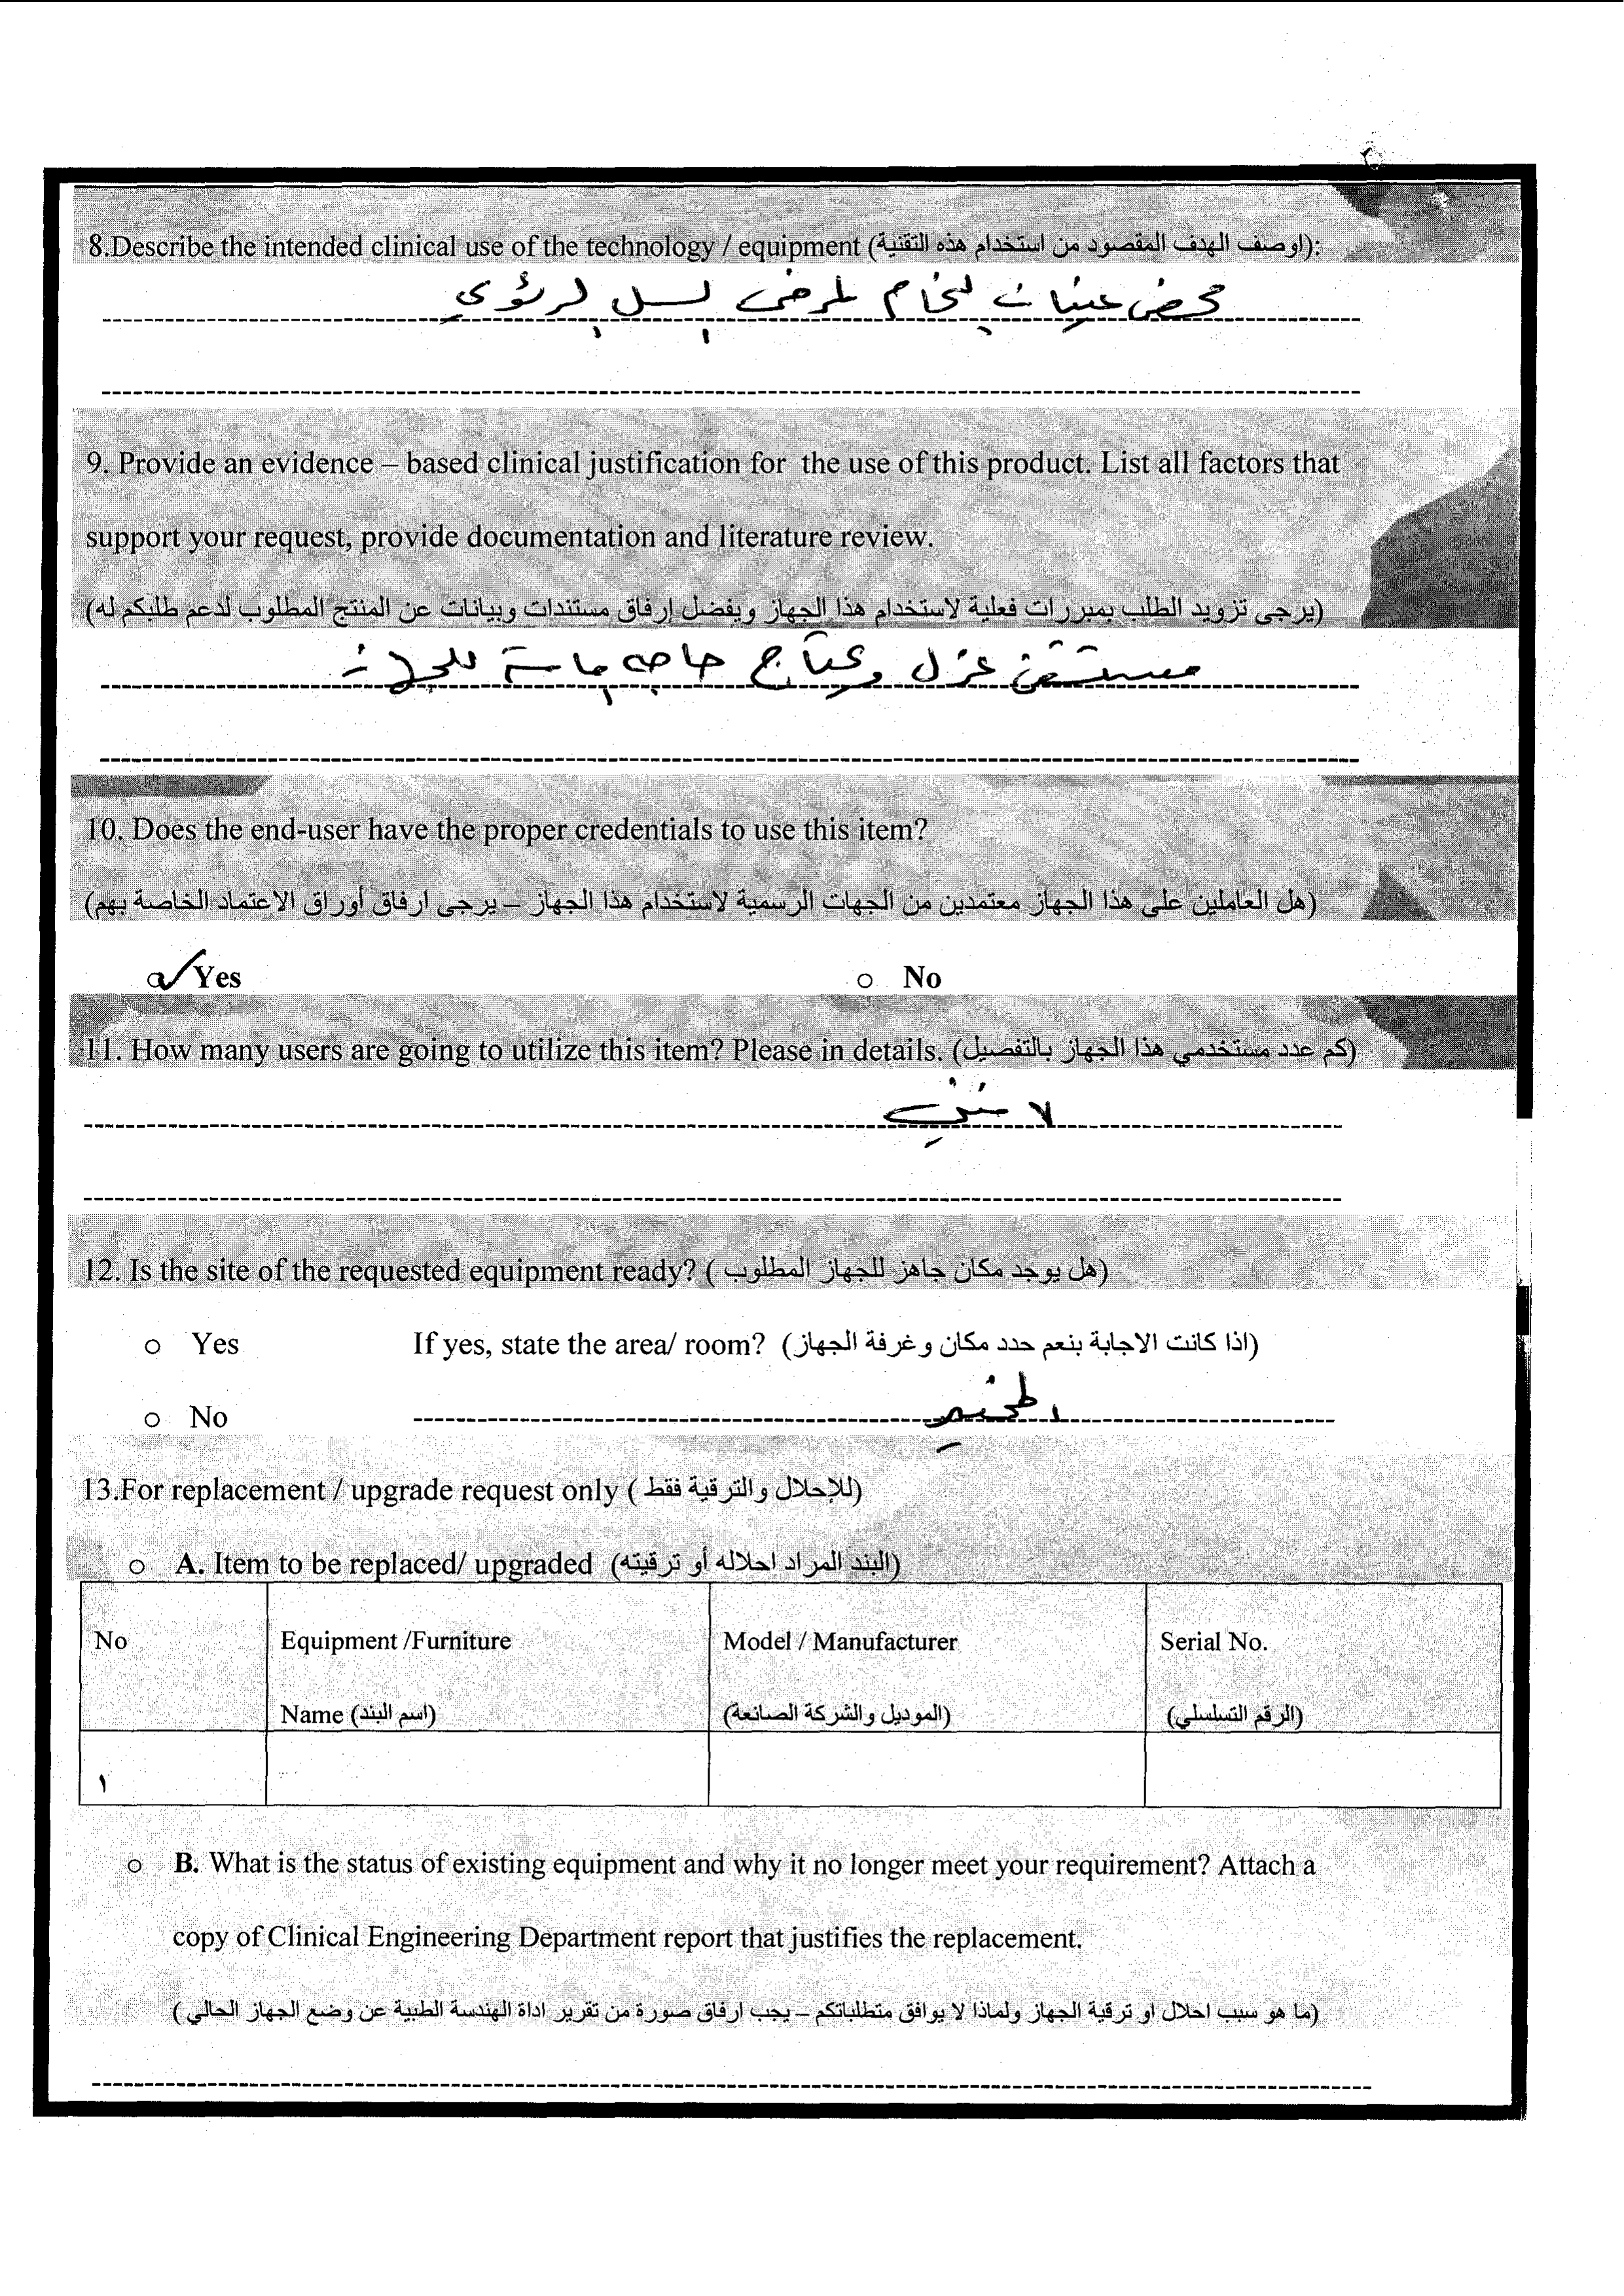 8.Describe the intended clinical use of the technology / equipment (اوصف الهدف المقصود من استخدام هذه التقنية):
فحص عينات بلغم لمرضى السل الرئوي
9. Provide an evidence – based clinical justification for the use of this product. List all factors that
support your request, provide documentation and literature review.
(يرجى تزويد الطلب بمبررات فعلية لاستخدام هذا الجهاز ويفضل إرفاق مستندات وبيانات عن المنتج المطلوب لدعم طلبكم له)
مستشفى عزل ويحتاج حاجه ماسة للجهاز
10. Does the end-user have the proper credentials to use this item?
(هل العاملين على هذا الجهاز معتمدين من الجهات الرسمية لاستخدام هذا الجهاز – يرجى ارفاق أوراق الاعتماد الخاصة بهم)
Yes o No
11. How many users are going to utilize this item? Please in details. (كم عدد مستخدمي هذا الجهاز بالتفصيل)
12. Is the site of the requested equipment ready? ( هل يوجد مكان جاهز للجهاز المطلوب)
o Yes If yes, state the area/ room? (اذا كانت الاجابة بنعم حدد مكان وغرفة الجهاز)
o No المختبر
13.For replacement / upgrade request only ( للإحلال والترقية فقط)
o A. Item to be replaced/ upgraded (البند المراد احلاله أو ترقيته)
No Equipment /Furniture Model / Manufacturer Serial No.
Name (اسم البند) (الموديل والشركة الصانعة) (الرقم التسلسلي)
١
o B. What is the status of existing equipment and why it no longer meet your requirement? Attach a
copy of Clinical Engineering Department report that justifies the replacement.
(ما هو سبب احلال او ترقية الجهاز ولماذا لا يوافق متطلباتكم – يجب ارفاق صورة من تقرير اداة الهندسة الطبية عن وضع الجهاز الحالي )